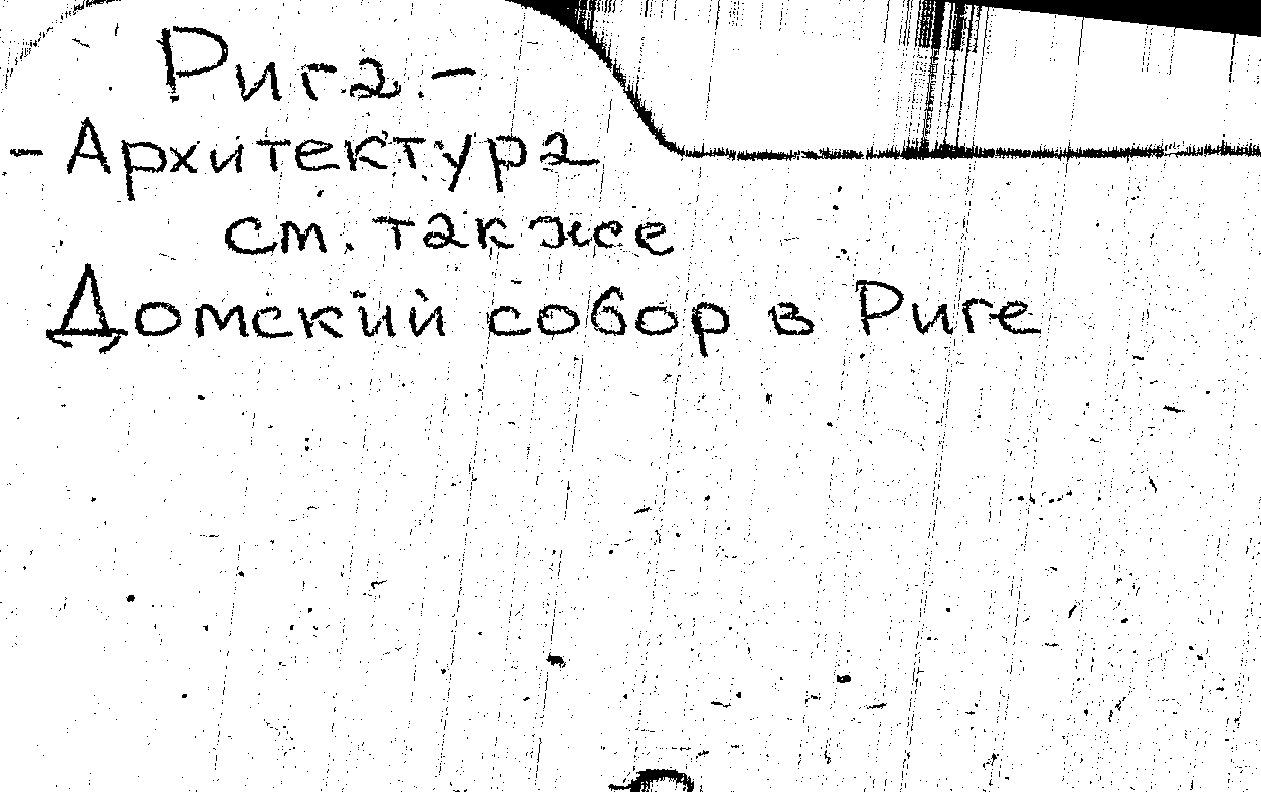 Рига -
- Архитектура
см. также
Домский собор в Риге